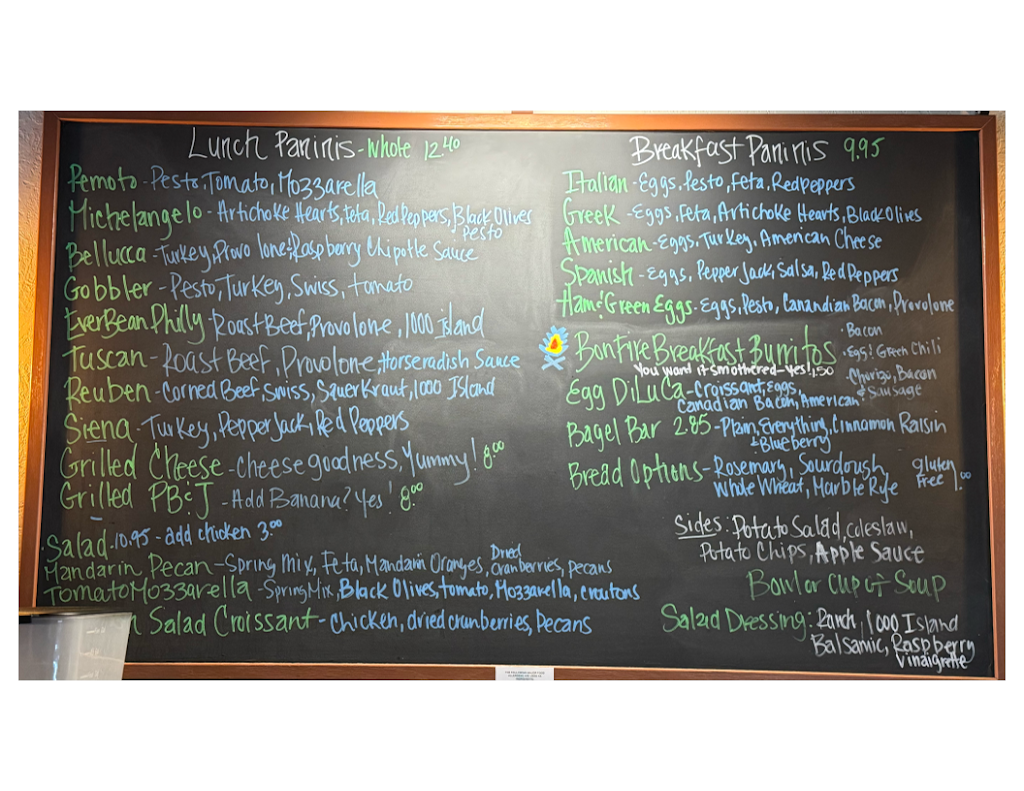 Lunch Paninis - Whole 12.40
Remoto - Pesto, Tomato, Mozzarella
Michelangelo - Artichoke Hearts, feta, Red Peppers, Black Olives
Pesto
Bellucca - Turkey, Provolone & Raspberry Chipotle Sauce
Gobbler - Pesto, Turkey, Swiss, tomato
EverBean Philly - Roast Beef, Provolone, 1000 Island
Tuscan - Roast Beef, Provolone, Horseradish Sauce
Reuben - Corned Beef, Swiss, SauerKraut, 1000 Island
Siena - Turkey, Pepper Jack, Red Peppers
Grilled Cheese - Cheese goodness, Yummy! 8.00
Grilled PB&J - Add Banana? Yes! 8.00
Salad - 10.95 - add chicken 3.00
Mandarin Pecan - Spring Mix, Feta, Mandarin Oranges, Dried Cranberries, pecans
Tomato Mozzarella - Spring Mix, Black Olives, tomato, Mozzarella, croutons
Salad Croissant - Chicken, dried cranberries, Pecans
Breakfast Paninis 9.95
Italian - Eggs, Pesto, Feta, Red peppers
Greek - Eggs, Feta, Artichoke Hearts, Black Olives
American - Eggs, Turkey, American Cheese
Spanish - Eggs, Pepper Jack, Salsa, Red Peppers
Ham & Green Eggs - Eggs, Pesto, Canandian Bacon, Provolone
Bonfire Breakfast Burritos
You want it Smothered - Yes! 1.50
· Bacon
· Egg & Green Chili
· Chorizo, Bacon
& Sausage
Egg DiLuCa - Croissant, Eggs,
Canadian Bacon, American
Bagel Bar 2.85 - Plain, Everything, Cinnamon Raisin
+ Blueberry
Bread Options - Rosemary, Sourdough,
Whole Wheat, Marble Rye
gluten
Free 1.00
Sides: Potato Salad, coleslaw,
Potato Chips, Apple Sauce
Bowl or Cup of Soup
Salad Dressing: Ranch, 1000 Island
Balsamic, Raspberry
Vinaigrette